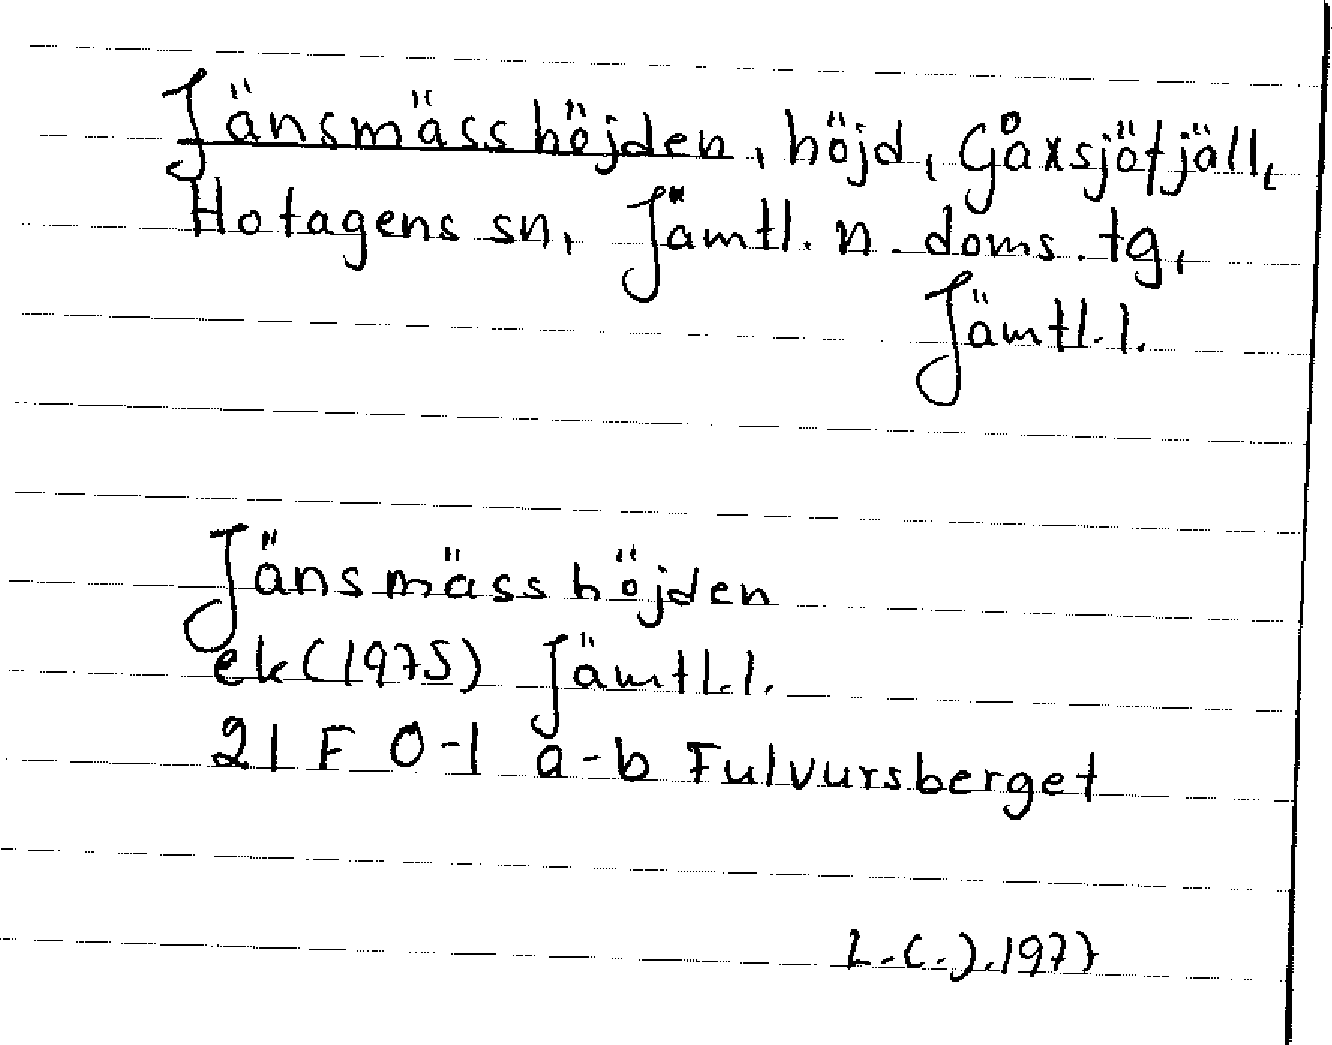 Jänsmässhöjden, höjd, Gåxsjöfjäll,
Hotagens sn, Jämtl. n. doms. tg,
Jämtl. l.
Jänsmässhöjden
ek (1975) Jämtl. l.
21 F 0-1 a-b Fulvursberget
1977